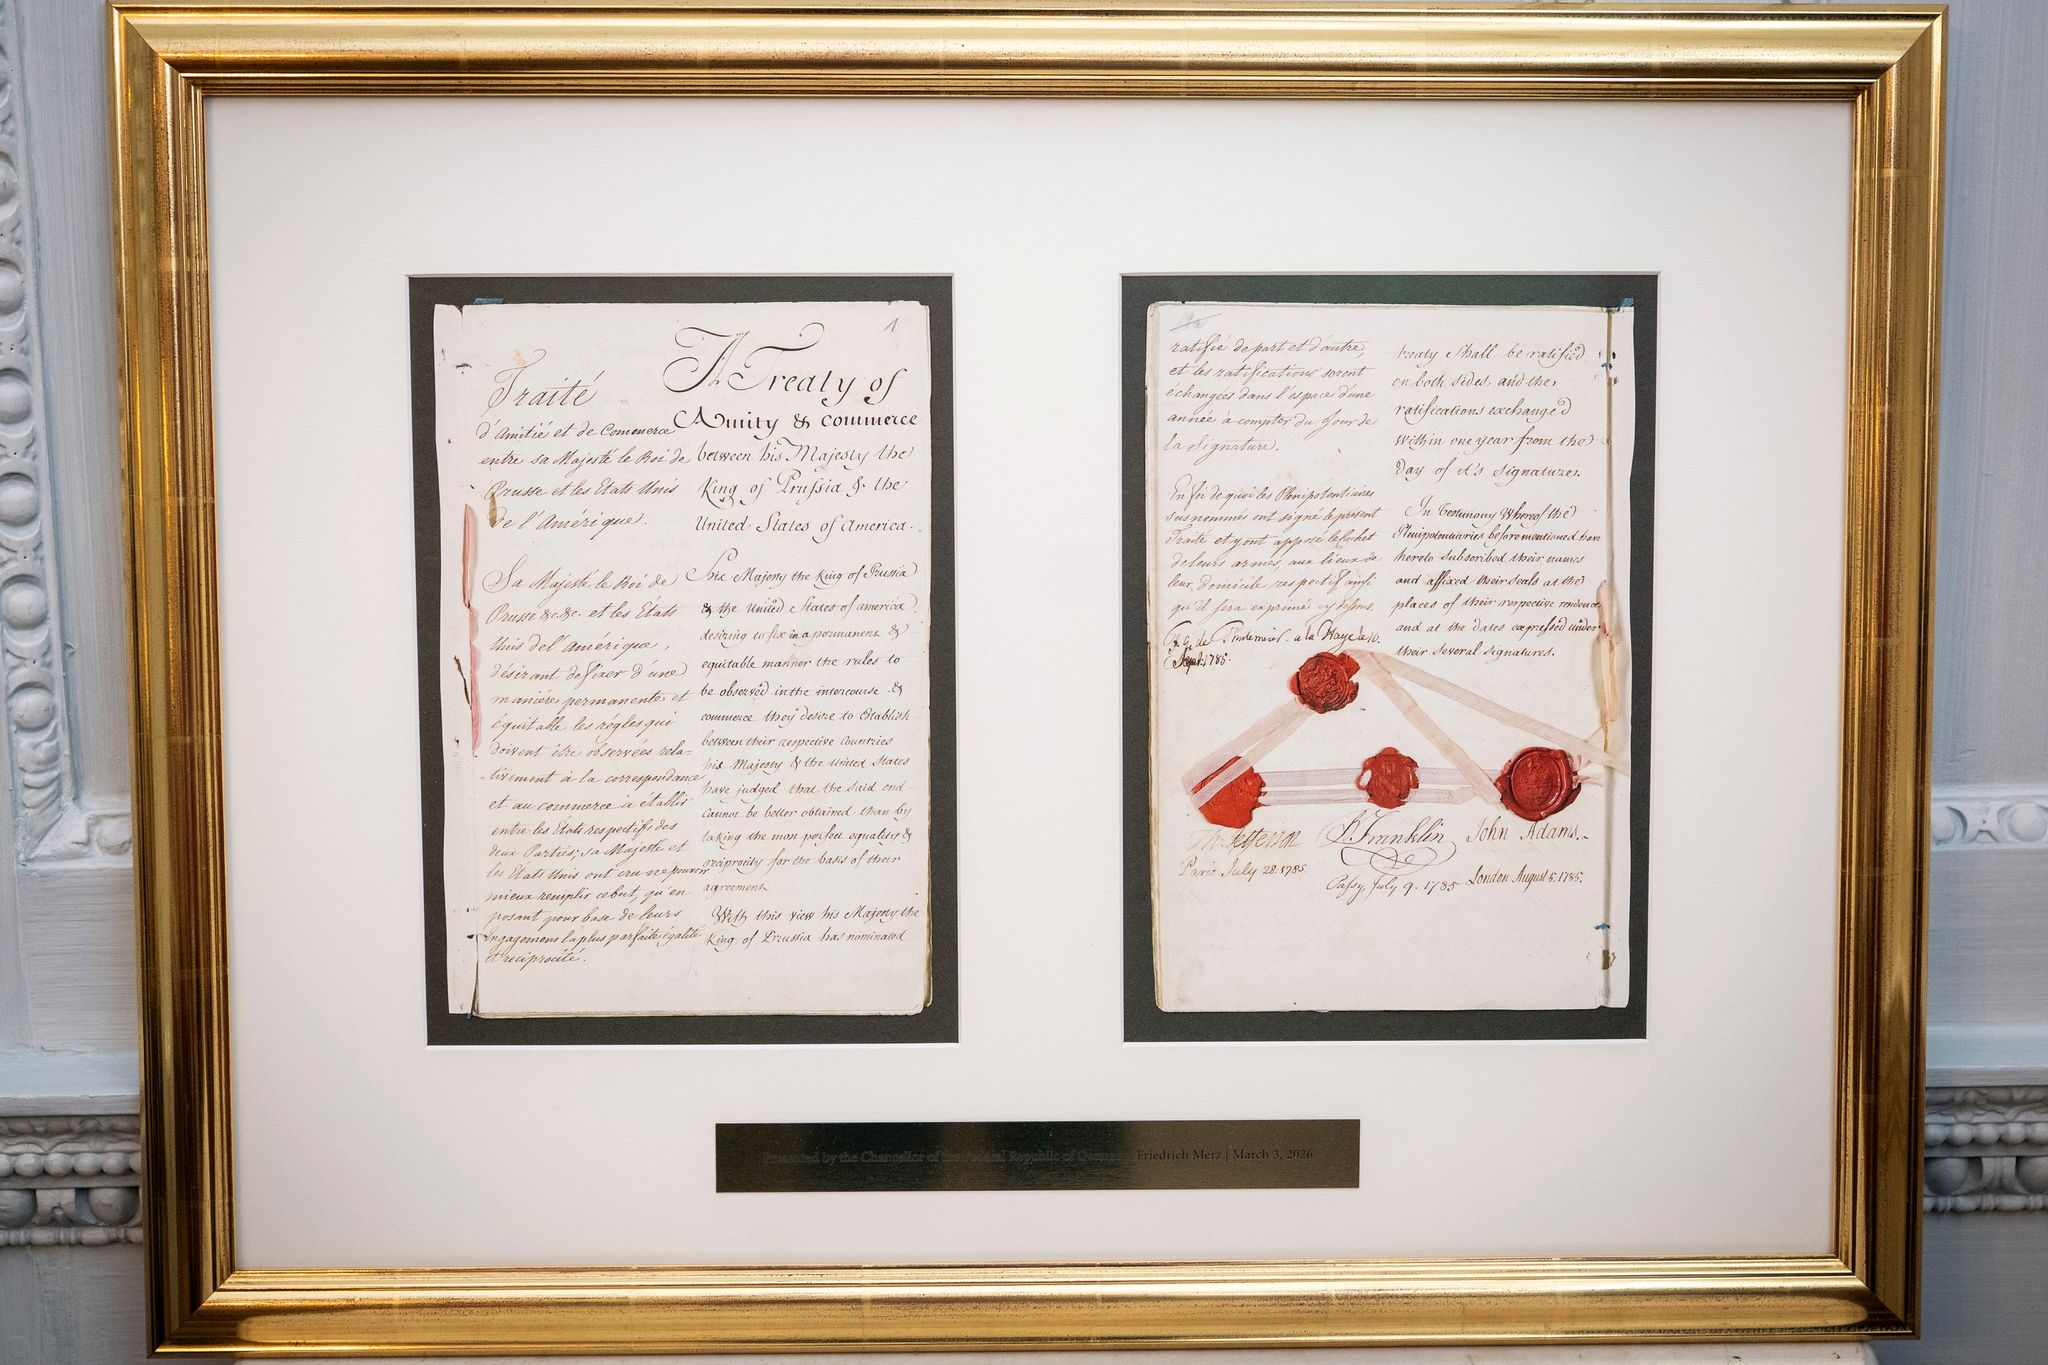 Traité
d'Amitié et de Commerce
entre sa Majesté le Roi de
Prusse et les Etats Unis
de l'Amérique.
Sa Majesté le Roi de
Prusse &c. &c. et les Etats
Unis de l'Amérique,
désirant de fixer d'une
manière permanente et
équitable les règles qui
doivent être observées rela-
tivement à la correspondance
et au commerce à établir
entre les Etats respectifs des
deux Parties; sa Majesté et
les Etats Unis ont cru ne pouvoir
mieux remplir ce but, qu'en
posant pour base de leurs
Engagemens la plus parfaite égalité
et reciprocité.
1
A Treaty of
Amity & commerce
between his Majesty the
King of Prussia & the
United States of America.
His Majesty the King of Prussia
& the United States of america,
desiring to fix in a permanent &
equitable manner the rules to
be observed in the intercourse &
commerce they desire to Establish
between their respective Countries
his Majesty & the United States
have judged that the said end
cannot be better obtained than by
taking the most perfect equality &
reciprocity for the basis of their
agreement.
With this view his Majesty the
King of Prussia has nominated
ratifié de part et d'autre,
et les ratifications seront
échangées dans l'espace d'une
année à compter du Jour de
la Signature.
En foi de quoi les Plenipotentiaires
susnommés ont signé le present
Traité et y ont apposé le Cachet
de leurs armes, aux lieux de
leur domicile respectif ainsi
qu'il sera exprimé cy dessous.
F. G. de Thulemeier. a la Haye le 10.
Sept. 1785.
treaty shall be ratified
on both sides, and the
ratifications exchanged
within one year from the
day of it's signature.
In testimony Whereof the
Plenipotentiaries before mentioned have
hereto subscribed their names
and affixed their seals at the
places of their respective residence
and at the dates expressed under
their several signatures.
Th. Jefferson
Paris July 28. 1785.
B. Franklin
Passy, July 9. 1785
John Adams.
London August 5. 1785.
Presented by the Chancellor of the Federal Republic of Germany Friedrich Merz | March 3, 2026